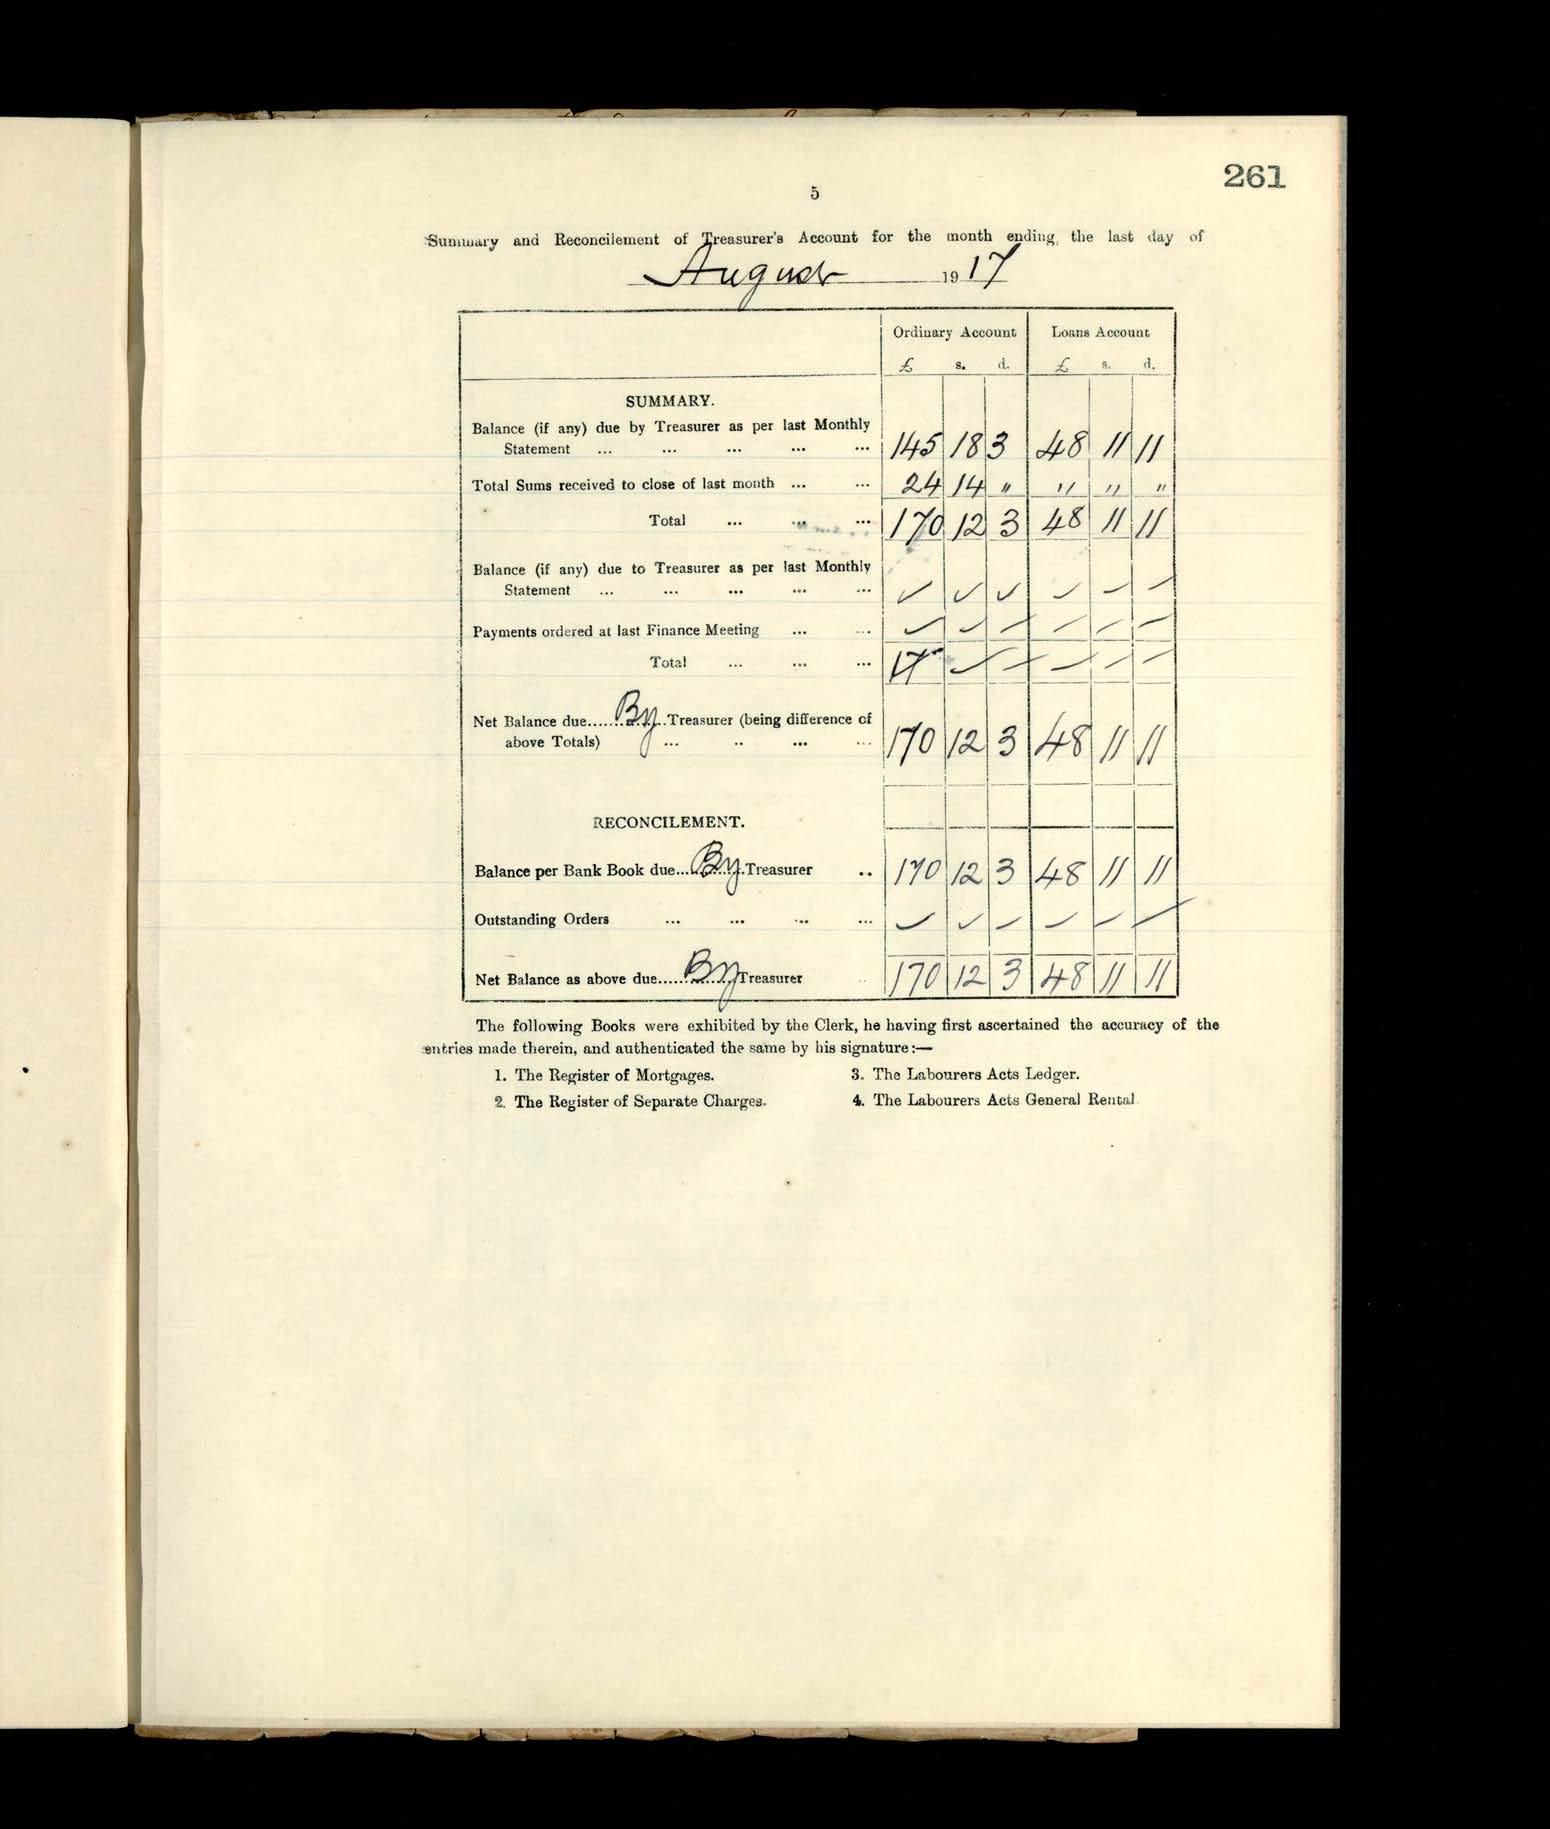 261
5
Summary and Reconcilement of Treasurer's Account for the month ending, the last day of
August 1917
Ordinary Account Loans Account
£ s. d. £ s. d.
SUMMARY.
Balance (if any) due by Treasurer as per last Monthly
Statement ... ... ... ... ... 145 18 3 48 11 11
Total Sums received to close of last month ... ... 24 14 " " " "
Total ... ... ... 170 12 3 48 11 11
Balance (if any) due to Treasurer as per last Monthly
Statement ... ... ... ... ... ✓ ✓ ✓ ✓ – –
Payments ordered at last Finance Meeting ... ... ✓ ✓ – – – –
Total ... ... ... ✓ – – – –
Net Balance due......By..Treasurer (being difference of
above Totals) ... .. ... ... 170 12 3 48 11 11
RECONCILEMENT.
Balance per Bank Book due....By..Treasurer .. 170 12 3 48 11 11
Outstanding Orders ... ... ... ... ✓ ✓ – – – –
Net Balance as above due......By Treasurer 170 12 3 48 11 11
The following Books were exhibited by the Clerk, he having first ascertained the accuracy of the
entries made therein, and authenticated the same by his signature:—
1. The Register of Mortgages. 3. The Labourers Acts Ledger.
2. The Register of Separate Charges. 4. The Labourers Acts General Rental